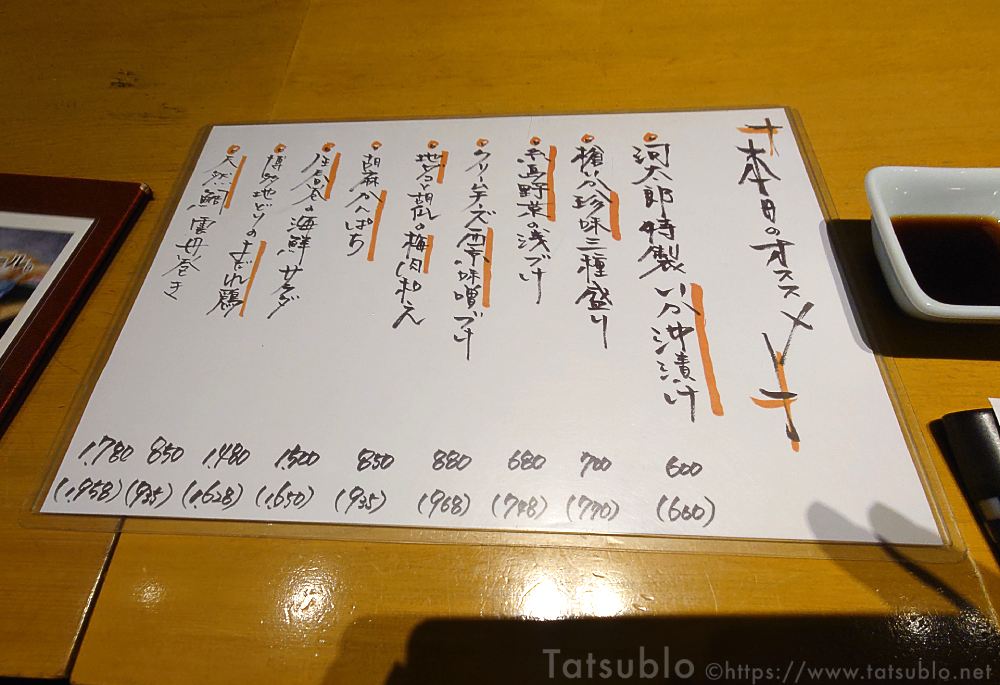 本日のオススメ
河太郎特製いか沖漬け 600 (660)
槍いか珍味三種盛り 700 (770)
糸島野菜の浅づけ 680 (748)
クリームチーズ西京味噌づけ 880 (968)
地だこと胡瓜の梅肉和え 850 (935)
胡麻かんぱち 1,500 (1,650)
の海鮮サラダ 1,480 (1,628)
博多地どりのよだれ鶏 850 (935)
天然鯛雲丹巻き 1,780 (1,958)
Tatsublo ©https://www.tatsublo.net